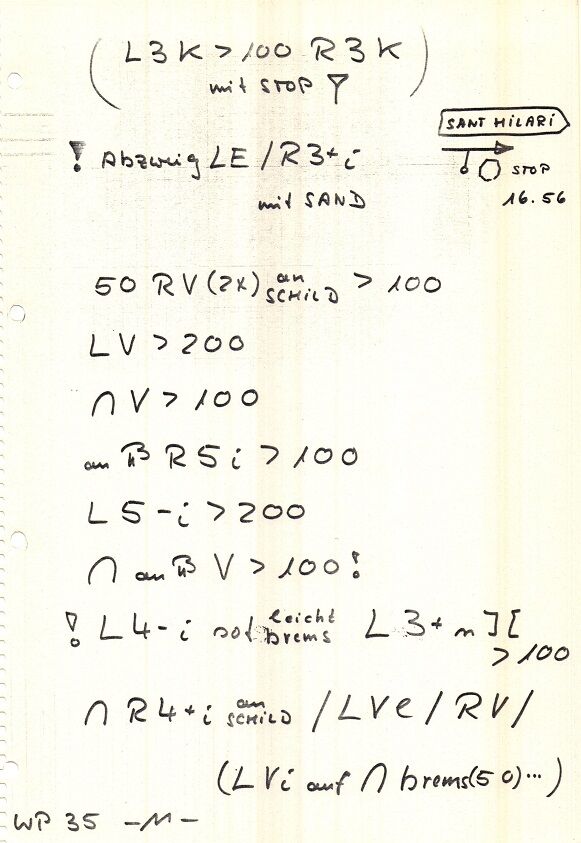 ( L3K > 100 R3K )
mit STOP
SANT HILARI
! Abzweig LE / R3+i
STOP
mit SAND
16.56
50 RV (2x) an SCHILD > 100
LV > 200
∩ V > 100
an R5i > 100
L5-i > 200
∩ an V > 100!
! L4-i sof leicht brems L3+ n ][
> 100
∩ R4+i an SCHILD / LVe / RV /
(LVi auf ∩ brems(50)...)
WP 35 -M-